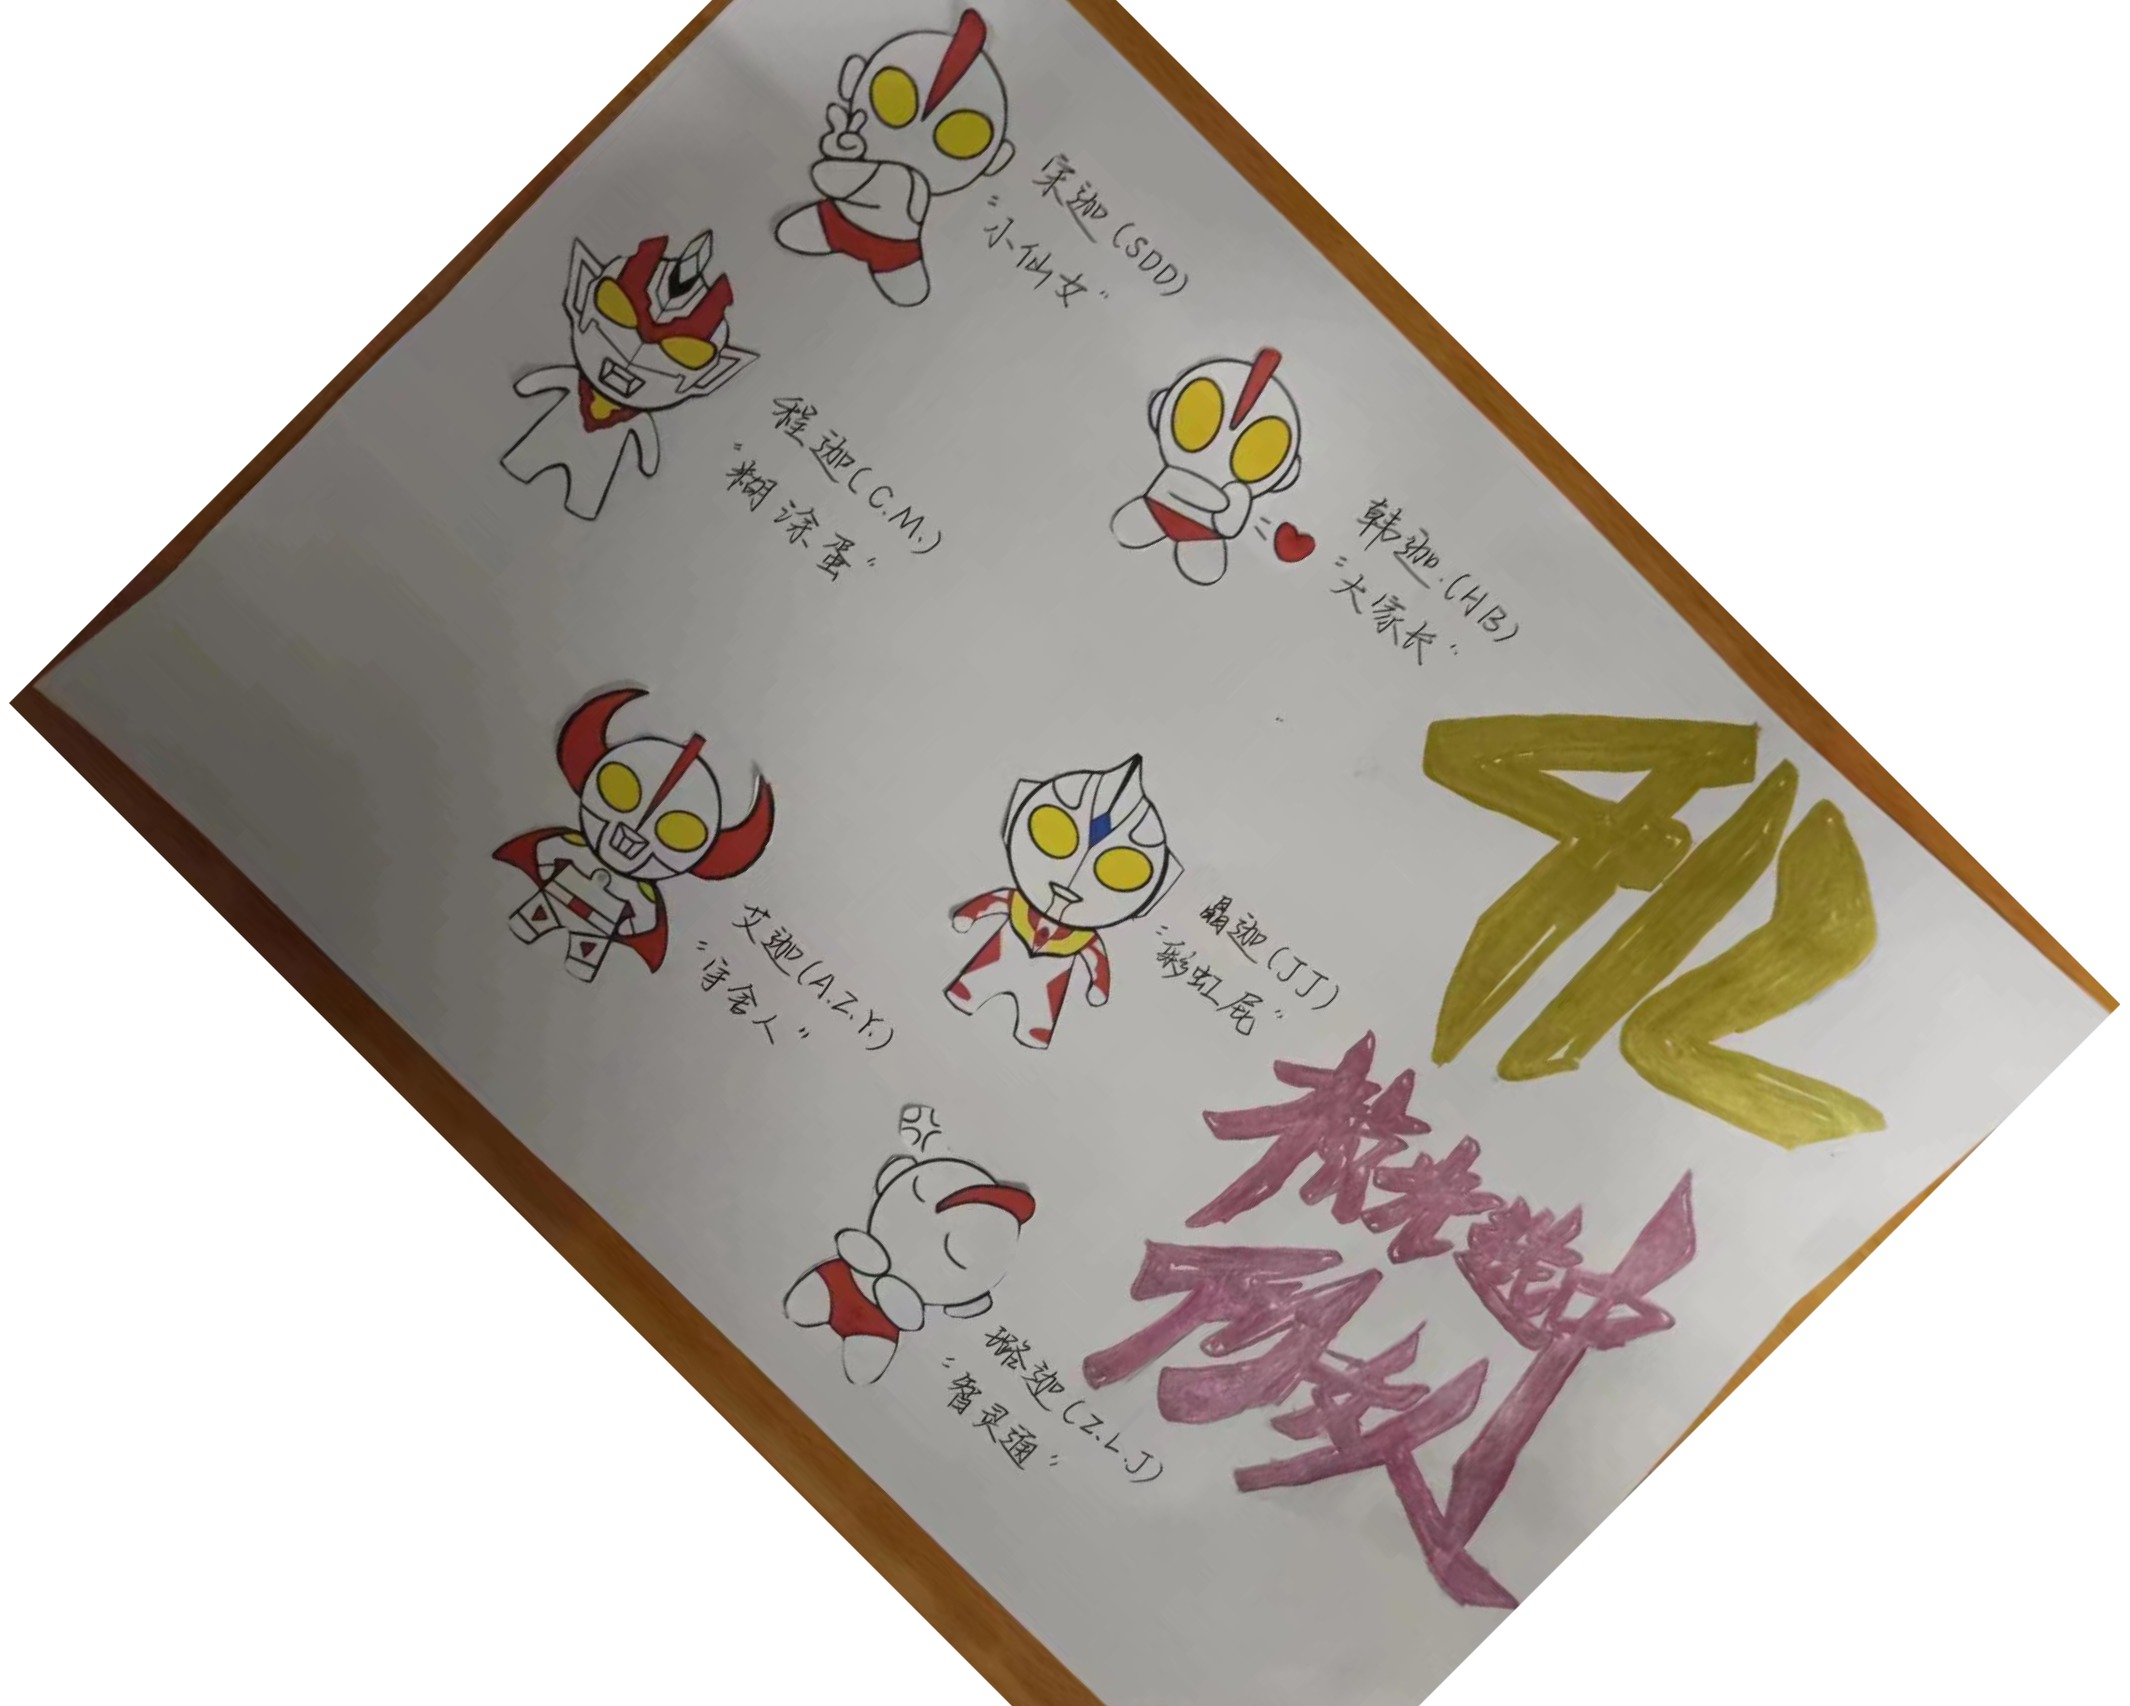 宋迦(SDD)
“小仙女”
程迦(C.M.)
“糊涂蛋”
韩迦.(HB)
“大家长”
艾迦(A.Z.Y.)
“宿舍人”
晶迦(JJ)
“彩虹屁”
璐迦(Z.L.J)
“智灵通”
412